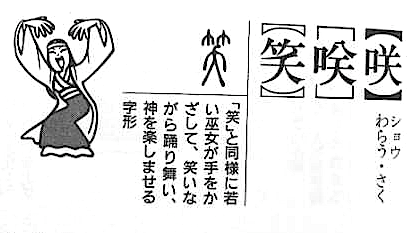 【咲】
[咲]
【笑】
ショウ
わらう・さく
「笑」と同様に若
い巫女が手をか
ざして、笑いな
がら踊り舞い、
神を楽しませる
字形